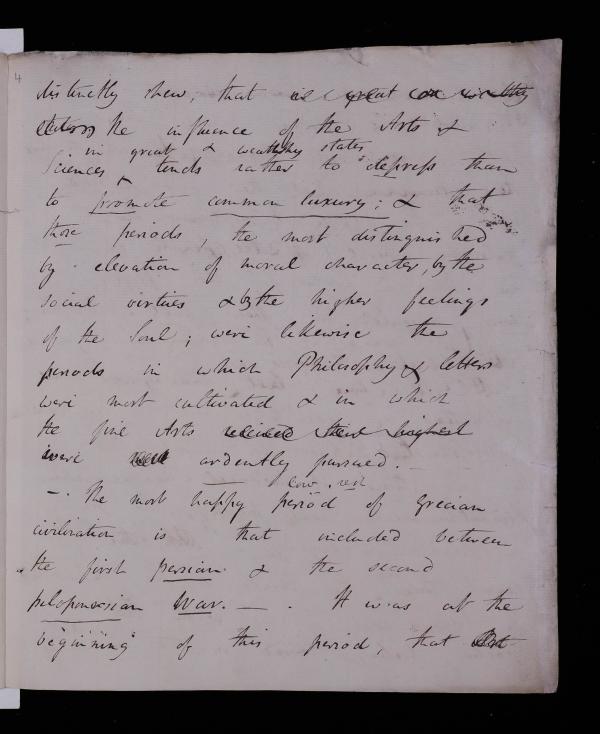 4
distinctly shew, that in great
the influence of the Arts &
in great & wealthy states
Sciences tends rather to depress than
to promote common luxury; & that
those periods, the most distinguished
by elevation of moral character, by the
social virtues & by the higher feelings
of the Soul; were likewise the
periods in which Philosophy & letters
were most cultivated & in which
the fine Arts received their highest
were ardently pursued. —
—. The most happy period of Grecian
civilization is that included between
the first persian & the second
peloponesian War. — . It was at the
beginning of this period, that